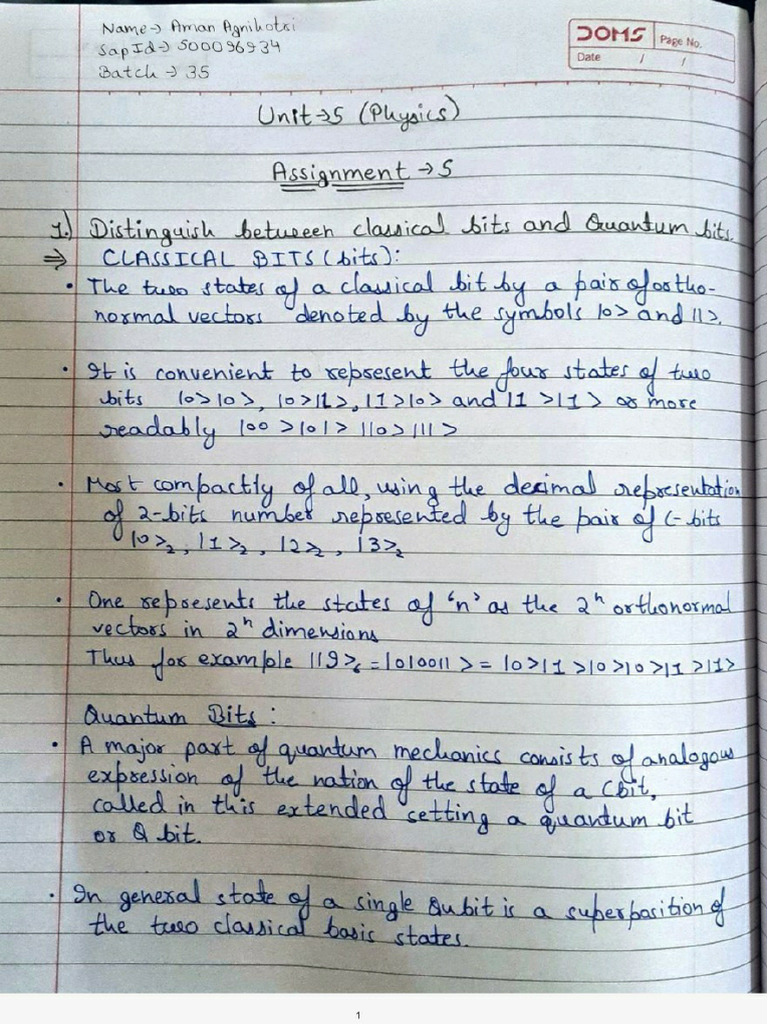 Name→ Aman Agnihotri
Sap Id→ 500096934
Batch → 35
DOMS Page No.
Date / /
Unit→5 (Physics)
Assignment → 5
1.) Distinguish between classical bits and Quantum bits.
⇒ CLASSICAL BITS (bits):
• The two states of a classical bit by a pair of ortho-
normal vectors denoted by the symbols |0> and |1>.
• It is convenient to represent the four states of two
bits |0>|0>, |0>|1>, |1>|0> and |1>|1> or more
readably |00>|01>|10>|11>
• Most compactly of all, using the decimal representation
of 2-bits number represented by the pair of C-bits
|0>₂, |1>₂, |2>₂, |3>₂
• One represents the states of 'n' as the 2ⁿ orthonormal
vectors in 2ⁿ dimensions
Thus for example |19>₆ = |010011> = |0>|1>|0>|0>|1>|1>
Quantum Bits:
• A major part of quantum mechanics consists of analogous
expression of the nation of the state of a Cbit,
called in this extended setting a quantum bit
or Q bit.
• In general state of a single Qubit is a superposition of
the two classical basis states.
1